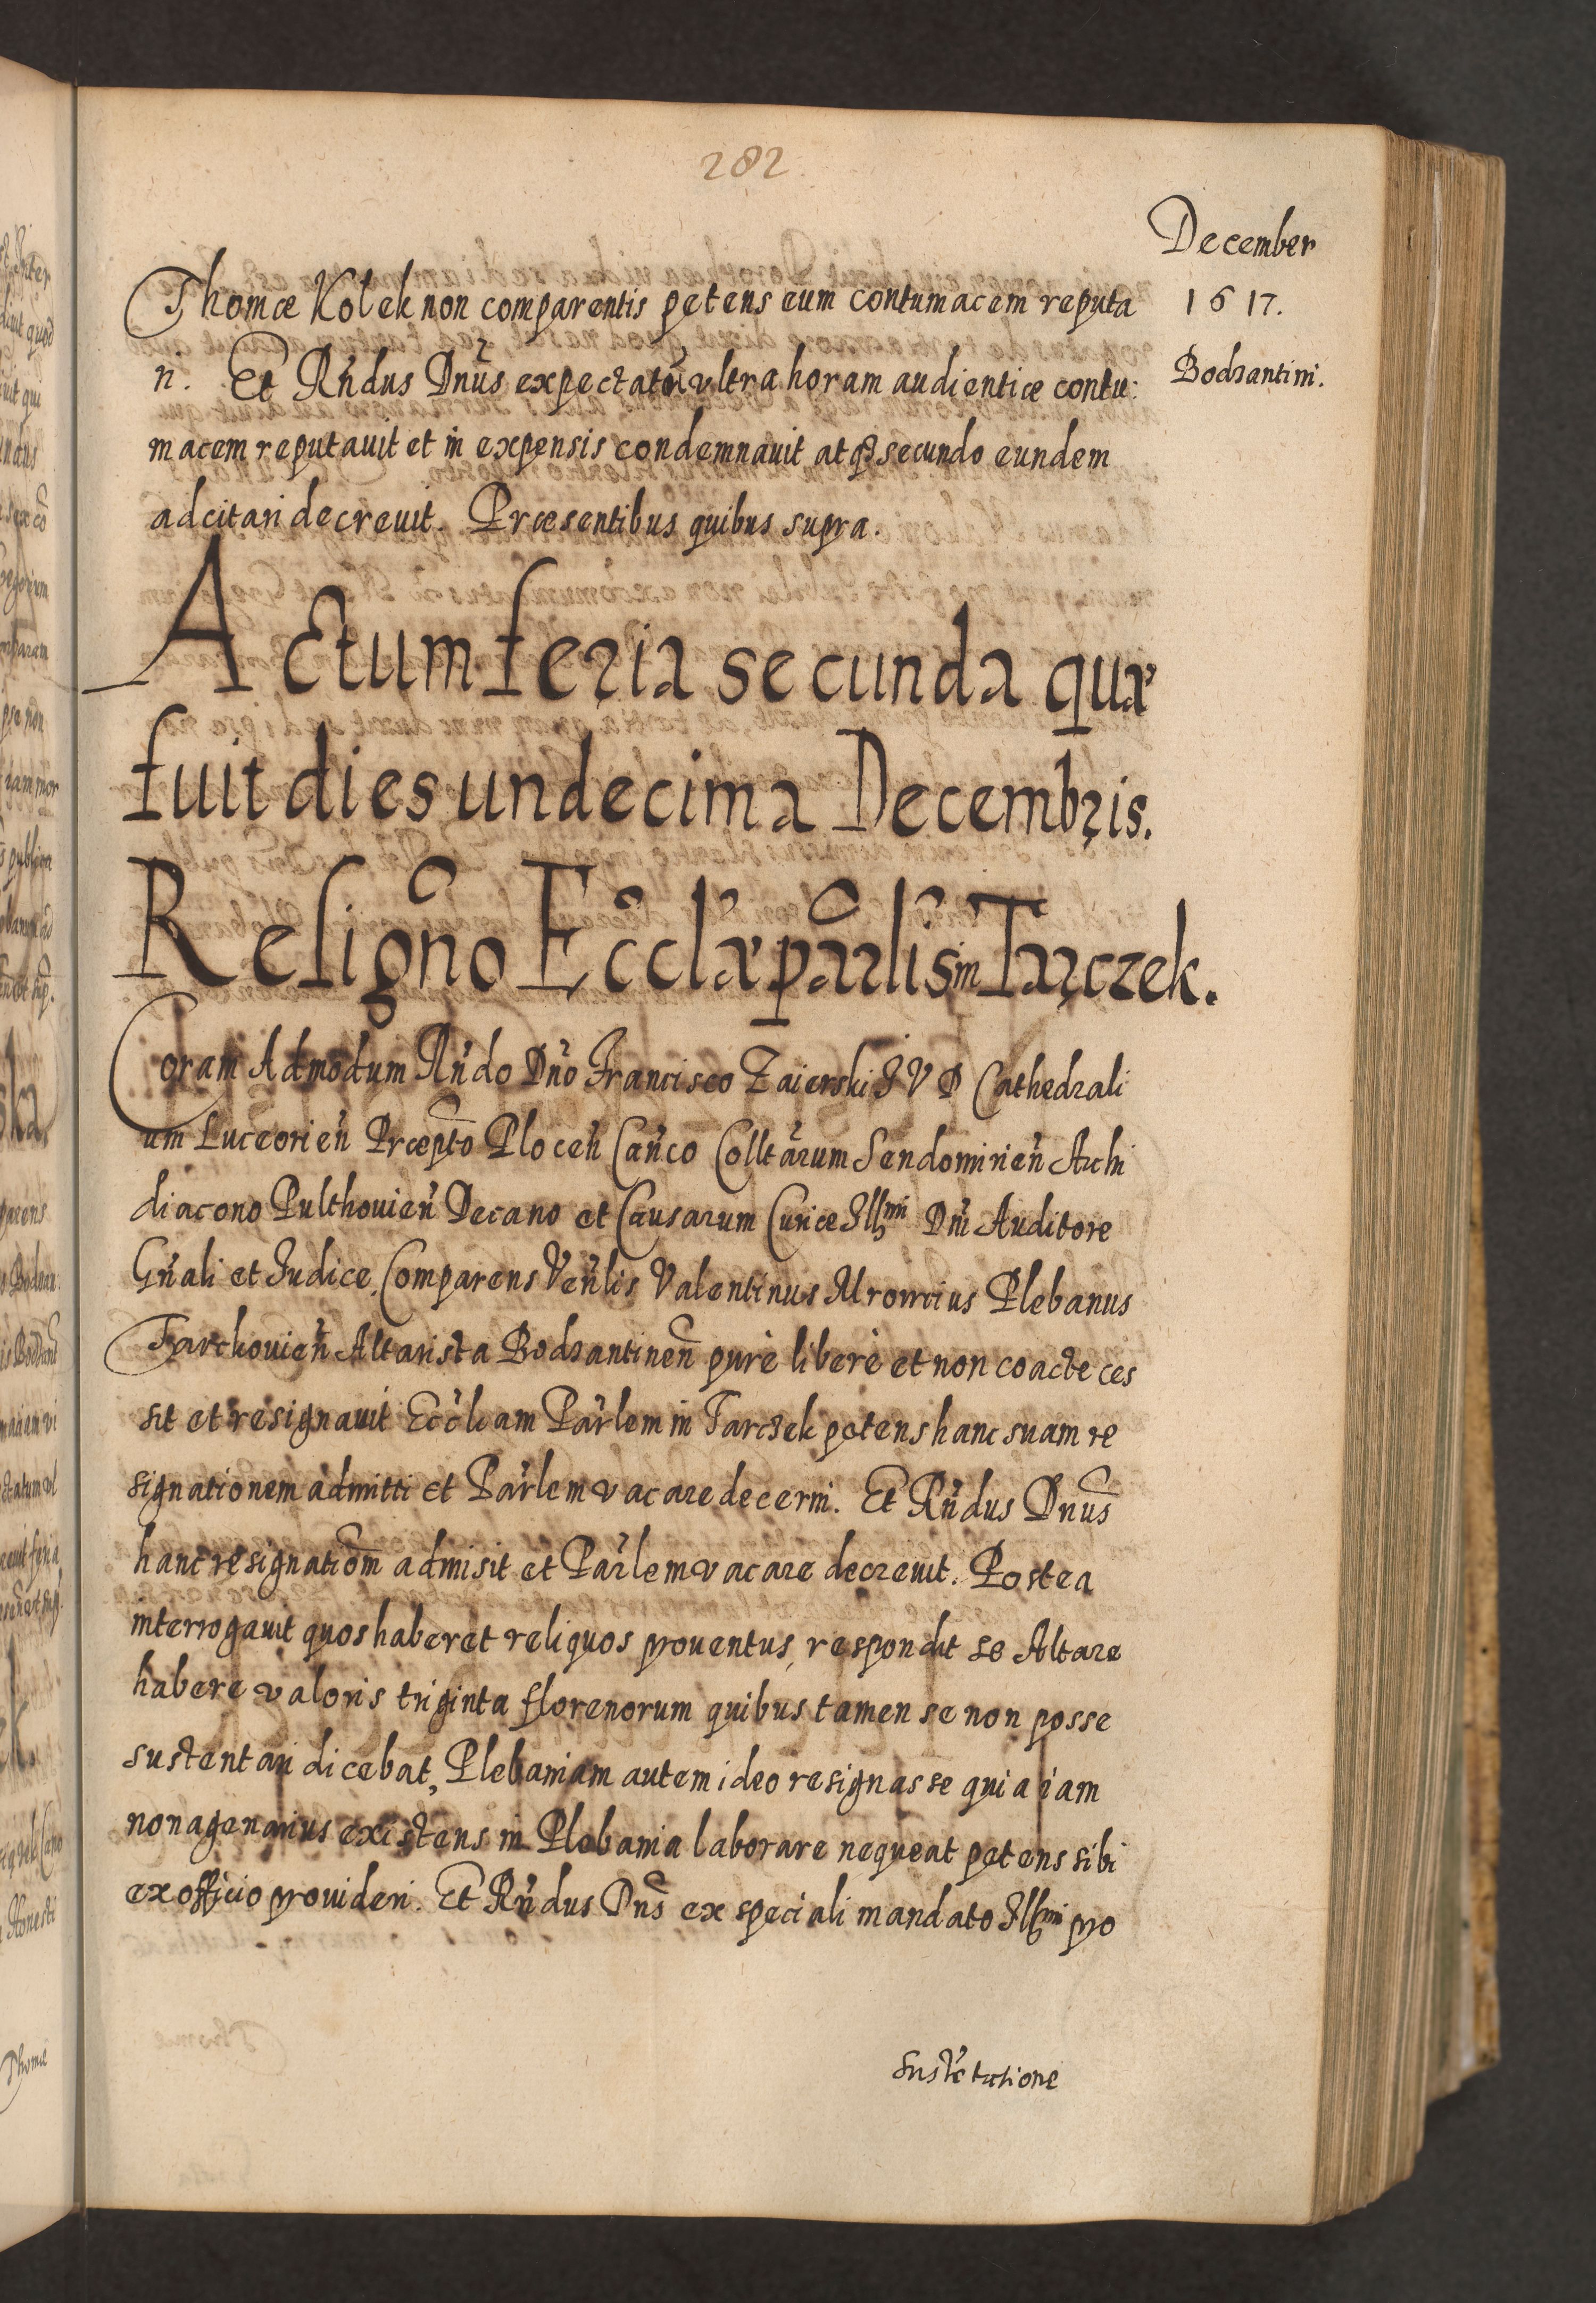 282
December
1617.
Bodzantini.
Thomæ Kolek non comparentis petens eum contumacem reputa
ri. Et Rńdus Dńus expectatū ultra horam audientiæ contu:
macem reputauit et in expensis condemnauit atqꝫ secundo eundem
adcitari decreuit. Præsentibus quibus supra.
Actum feria secunda quæ
fuit dies undecima Decembris.
Resignõ Ecclæ pãrlis in Tarczek.
Coram Admodum Rńdo Dńo Francisco Zaierski IVD Cathedrali
um Luceorień Præpto Ploceń Cańco Colltarum Sendomirień Archi
diacono Pulthouień Decano et Causarum Curiæ Illmi Dńi Auditore
Gńali et Iudice. Comparens Veńlis Valentinus Plebanus
Tarckouień Altarista Bodzantineñ purè liberè et non coacte ces
sit et resignauit Eccliam Pãrlem in Tarczek petens hanc suam re
signationem admitti et Pãrlem vacare decerni. Et Rńdus Dnus
hanc resignatiom admisit et Pãrlem vacare decreuit. Postea
interrogauit quos haberet reliquos prouentus, respondit se Altare
habere valoris triginta florenorum quibus tamen se non posse
sustentari dicebat, Plebaniam autem ideo resignasse quia iam
nonagenarius existens in Plebania laborare nequeat petens sibi
ex officio prouideri. Et Rńdus Dns ex speciali mandato Illmi pro
Sustẽtatione